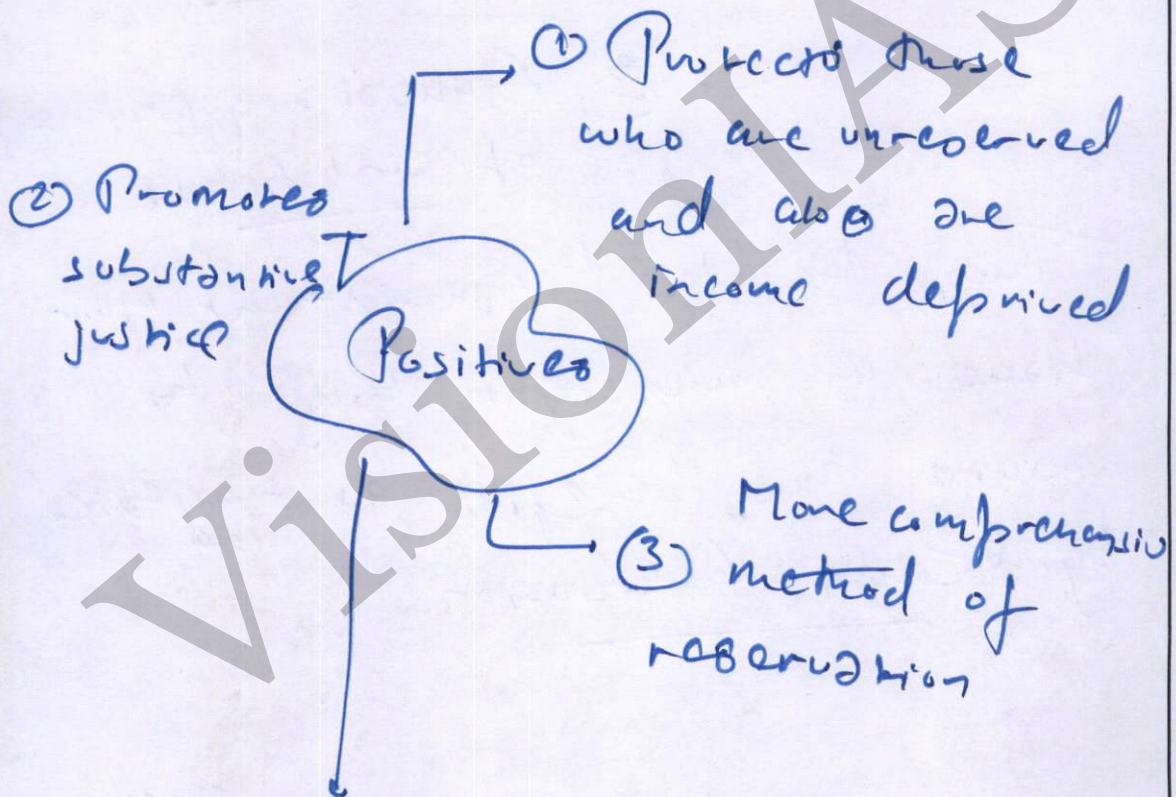 ① Protects those
who are unreserved
and also are
income deprived
② Promotes
substantive
justice
Positives
③ More comprehensiv
method of
reservation
VisionIAS